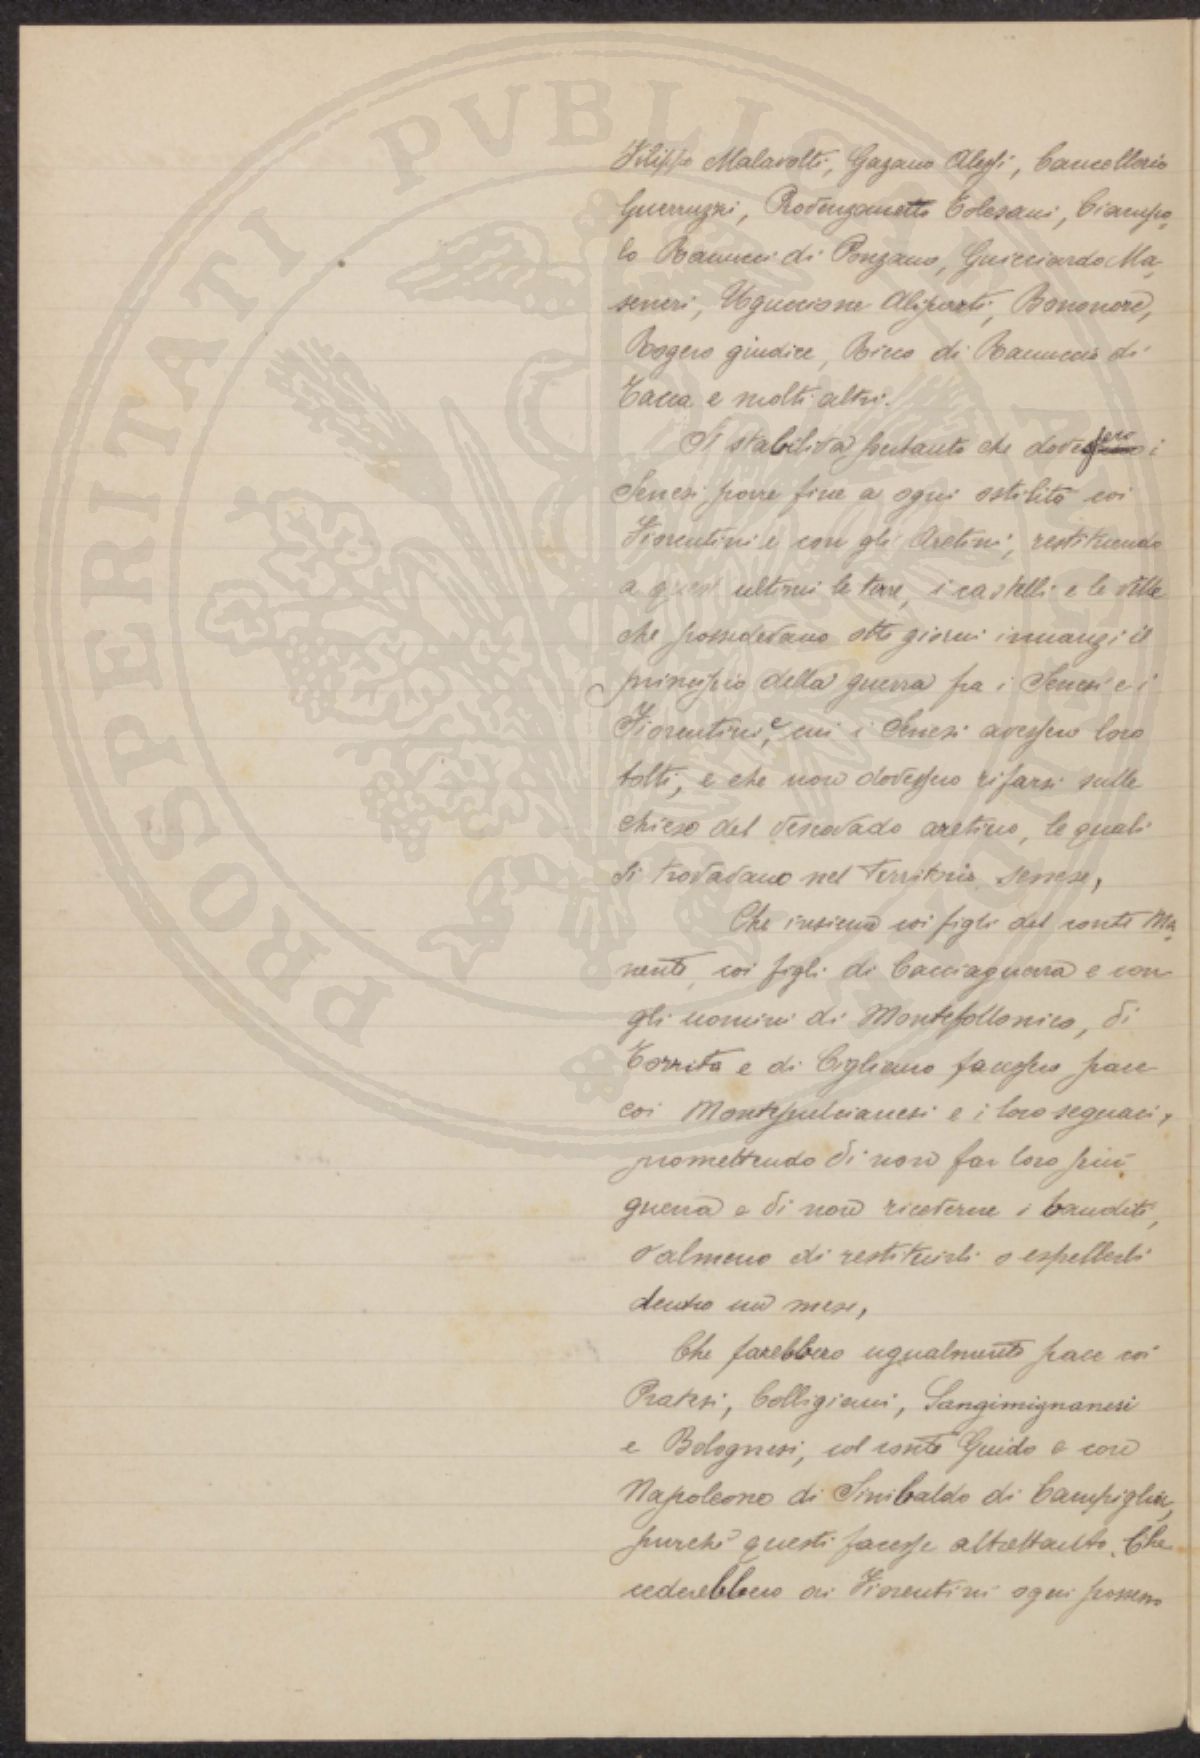 Filippo Malavolti, Gazano Alessi, Cancellerio
Guerruzzi, Provenzanetto Tolesani, Ciampo-
lo Ranucci di Ponzano, Guicciardo Ma-
seneri, Uguccione Aliparti, Bononore,
Rogero giudice, Ricco di Ranuccio di
Tacca e molti altri.
Si stabiliva pertanto che dovessero i
Senesi porre fine a ogni ostilità coi
Fiorentini e con gli Aretini, restituendo
a quest'ultimi le terre, i castelli e le ville
che possedevano otto giorni innanzi il
principio della guerra fra i Senesi e i
Fiorentini, e cui i Senesi avessero loro
tolti, e che non dovessero rifarsi sulle
chiese del vescovado aretino, le quali
si trovavano nel territorio senese,
Che insieme coi figli del conte Ma-
nente, coi figli di Cacciaguerra e con
gli uomini di Montefollonico, di
Torrita e di Cigliano facessero pace
coi Montepulcianesi e i loro seguaci,
promettendo di non far loro più
guerra e di non riceverne i banditi,
o almeno di restituirli o espellerli
dentro un mese,
Che farebbero ugualmente pace coi
Pratesi, Colligiani, Sangimignanesi
e Bolognesi, col conte Guido e con
Napoleone di Sinibaldo di Campiglia,
purchè questi facesse altrettanto. Che
cederebbero ai Fiorentini ogni possesso
PROSPERITATI PVBLICAE